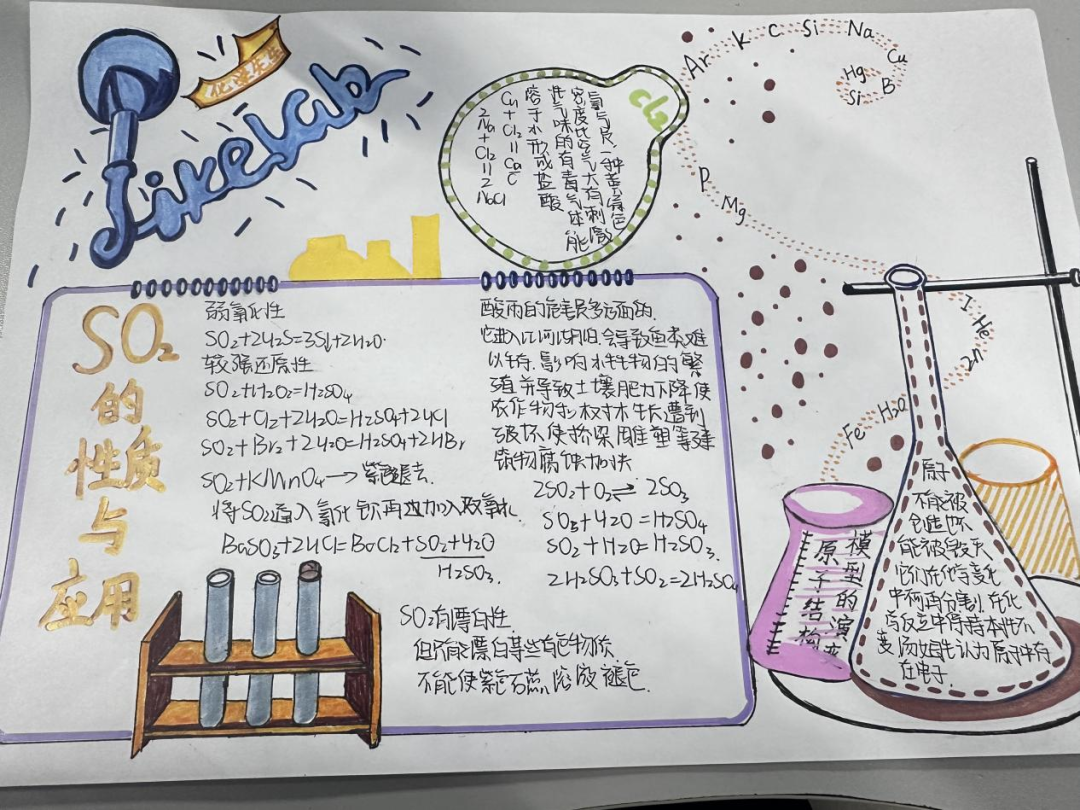 化学先生
LikeLab
Cl₂
氯气是一种黄绿色
密度比空气大有刺激
性气味的有毒气体能
溶于水形成盐酸
Cu+Cl₂=CuCl
2Na+Cl₂=2NaCl
Ar K C Si Na Cu B Si Hg
P Mg
I He Zn
Fe H₂O
SO₂的性质与应用
弱氧化性
SO₂+2H₂S=3S↓+2H₂O
较强还原性
SO₂+H₂O₂=H₂SO₄
SO₂+Cl₂+2H₂O=H₂SO₄+2HCl
SO₂+Br₂+2H₂O=H₂SO₄+2HBr
SO₂+KMnO₄→紫色褪去
将SO₂通入氯化钡再加入双氧水
BaSO₃+2HCl=BaCl₂+SO₂+H₂O
H₂SO₃
SO₂有漂白性
但只能漂白某些有色物质
不能使紫色石蕊溶液褪色
酸雨的危害是多方面的
会导致鱼类难
以生存,影响水生生物的繁
殖并导致土壤肥力下降使
农作物和树木生长遭到
破坏使桥梁雕塑等建
筑物腐蚀加快
2SO₂+O₂⇌2SO₃
SO₃+H₂O=H₂SO₄
SO₂+H₂O=H₂SO₃
2H₂SO₃+SO₂=2H₂SO₄
原子结构
模型的演变
原子
不能被
创造亦
能被毁灭
它们在化学变化
中不可再分割,在化
学反应中保持本性不
变,汤姆生认为原子中存
在电子.